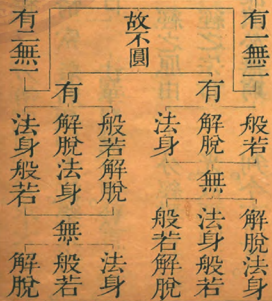 有一無二
故不圓
有二無一
有
般若
解脫
法身
無
解脫法身
法身般若
般若解脫
有
般若解脫
解脫法身
法身般若
無
法身
般若
解脫